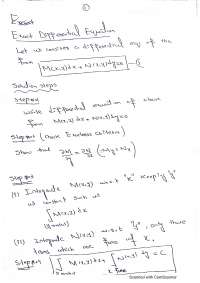 ①
Exact
Exact Differential Equation
Let us consider a differential eqn of the
form M(x,y)dx+N(x,y)dy=0 —①
Solution steps
Step 01
write differential equation of above
form M(x,y)dx+N(x,y)dy=0
Step 02 (check Exactness criterion)
Show that ∂M/∂y = ∂N/∂x (My=Nx)
Step 03
(I) Integrate M(x,y) w.r.t "x" keeply "y"
as constant such as
∫M(x,y)dx
(II) Integrate N(x,y) w.r.t "y", only those
terms which are free of x,
Step 04 ∫M(x,y)dx+∫N(x,y)dy=C
x free
Scanned with CamScanner